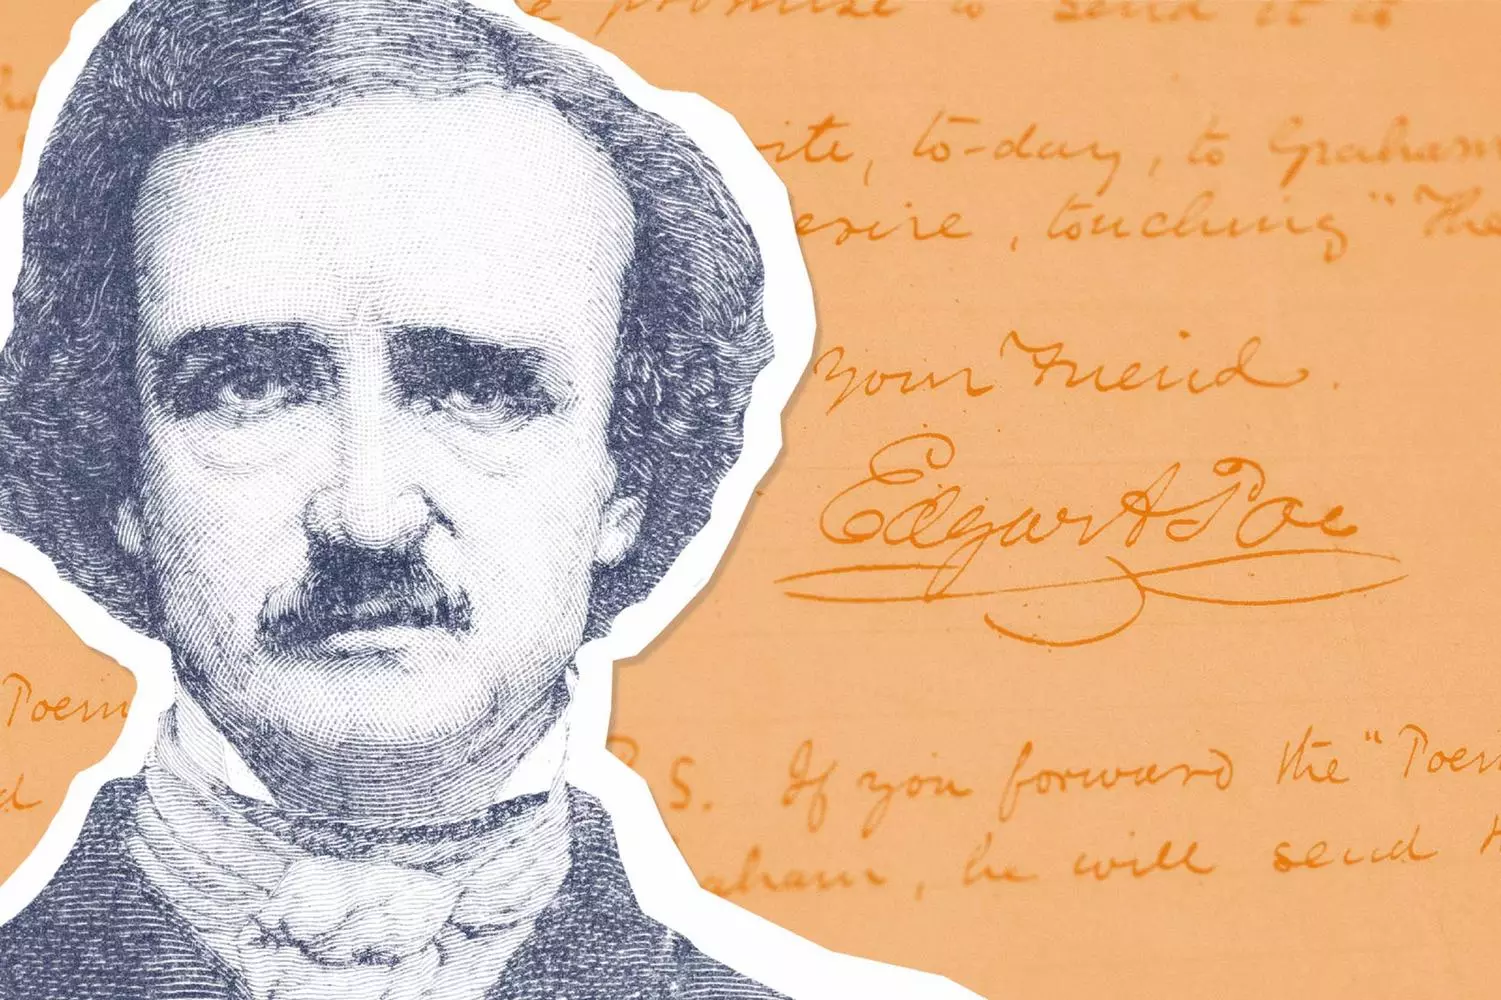 promise to send it to
ite, to-day, to Graham
esire, touching "The
your friend.
Edgar A Poe
Poem
d
P.S. If you forward the "Poem
aham, he will send